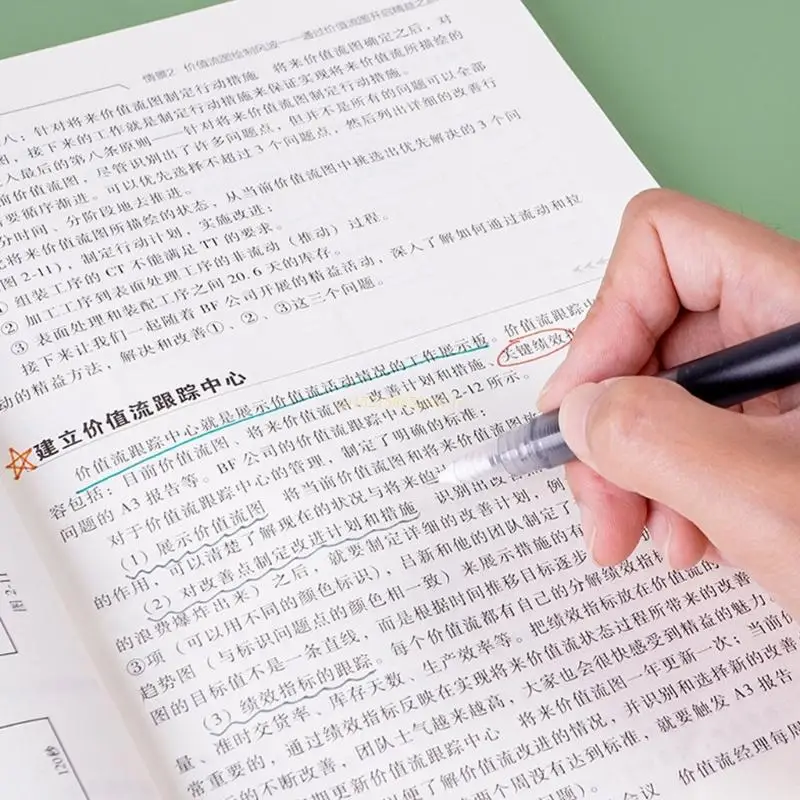 情景2 价值流图绘制风波——通过价值流图开启精益之
人：针对将来价值流图制定行动措施 将来价值流图确定之后，对
图，接下来的工作就是制定行动措施来保证实现将来价值流所描绘的
人最后的第八条原则——针对将来价值流图制定行动措施。
前价值流图，尽管识别出了许多问题点，但并不是所有的问题可以全部
需要循序渐进。可以优先选择不超过3个问题点，然后列出详细的改善行
分时间、分阶段地去推进。
将来价值流图所描绘的状态，从当前价值流图中挑选出优先解决的3个问
图2-11），制定行动计划，实施改进：
① 组装工序的CT不能满足TT的要求。
② 加工工序到表面处理工序的非流动（推动）过程。
③ 表面处理和装配工序之间20.6天的库存。
接下来让我们一起随着BF公司开展的精益活动，深入了解如何通过流动和拉
动的精益方法，解决和改善①、②、③这三个问题。
建立价值流跟踪中心
价值流跟踪中心就是展示价值流活动情况的工作展示板。价值流跟踪
容包括：目前价值流图、将来价值流图、改善计划和措施、关键绩效
问题的A3报告等。BF公司的价值流跟踪中心如图2-12所示。
对于价值流跟踪中心的管理，制定了明确的标准：
（1）展示价值流图 将当前价值流图和将来价值流图
的作用，可以清楚了解现在的状况与将来的
（2）对改善点制定改进计划和措施 识别出改善
的浪费爆炸出来）之后，就要制定详细的改善计划，例
③项（可以用不同的颜色标识），吕新和他的团队制定了
趋势图（与标识问题点的颜色相一致）来展示措施的有
图的目标值不是一条直线，而是根据时间推移目标逐步
（3）绩效指标的跟踪。每个价值流都有自己的分解绩效指标
量、准时交货率、库存天数、生产效率等。把绩效指标放在价值流的
常重要的，通过绩效指标反映在实现将来价值流状态过程所带来的改善
的不断改善，团队士气越来越高，大家也会很快感受到精益的魅力
期更新价值流跟踪中心 将来价值流图一年更新一次；当前价
便了解价值流改进的情况，并识别和选择新的改善
两个周没有达到标准，就要触发A3报告
会议 价值流经理每周
问题）。
图2-11
120秒